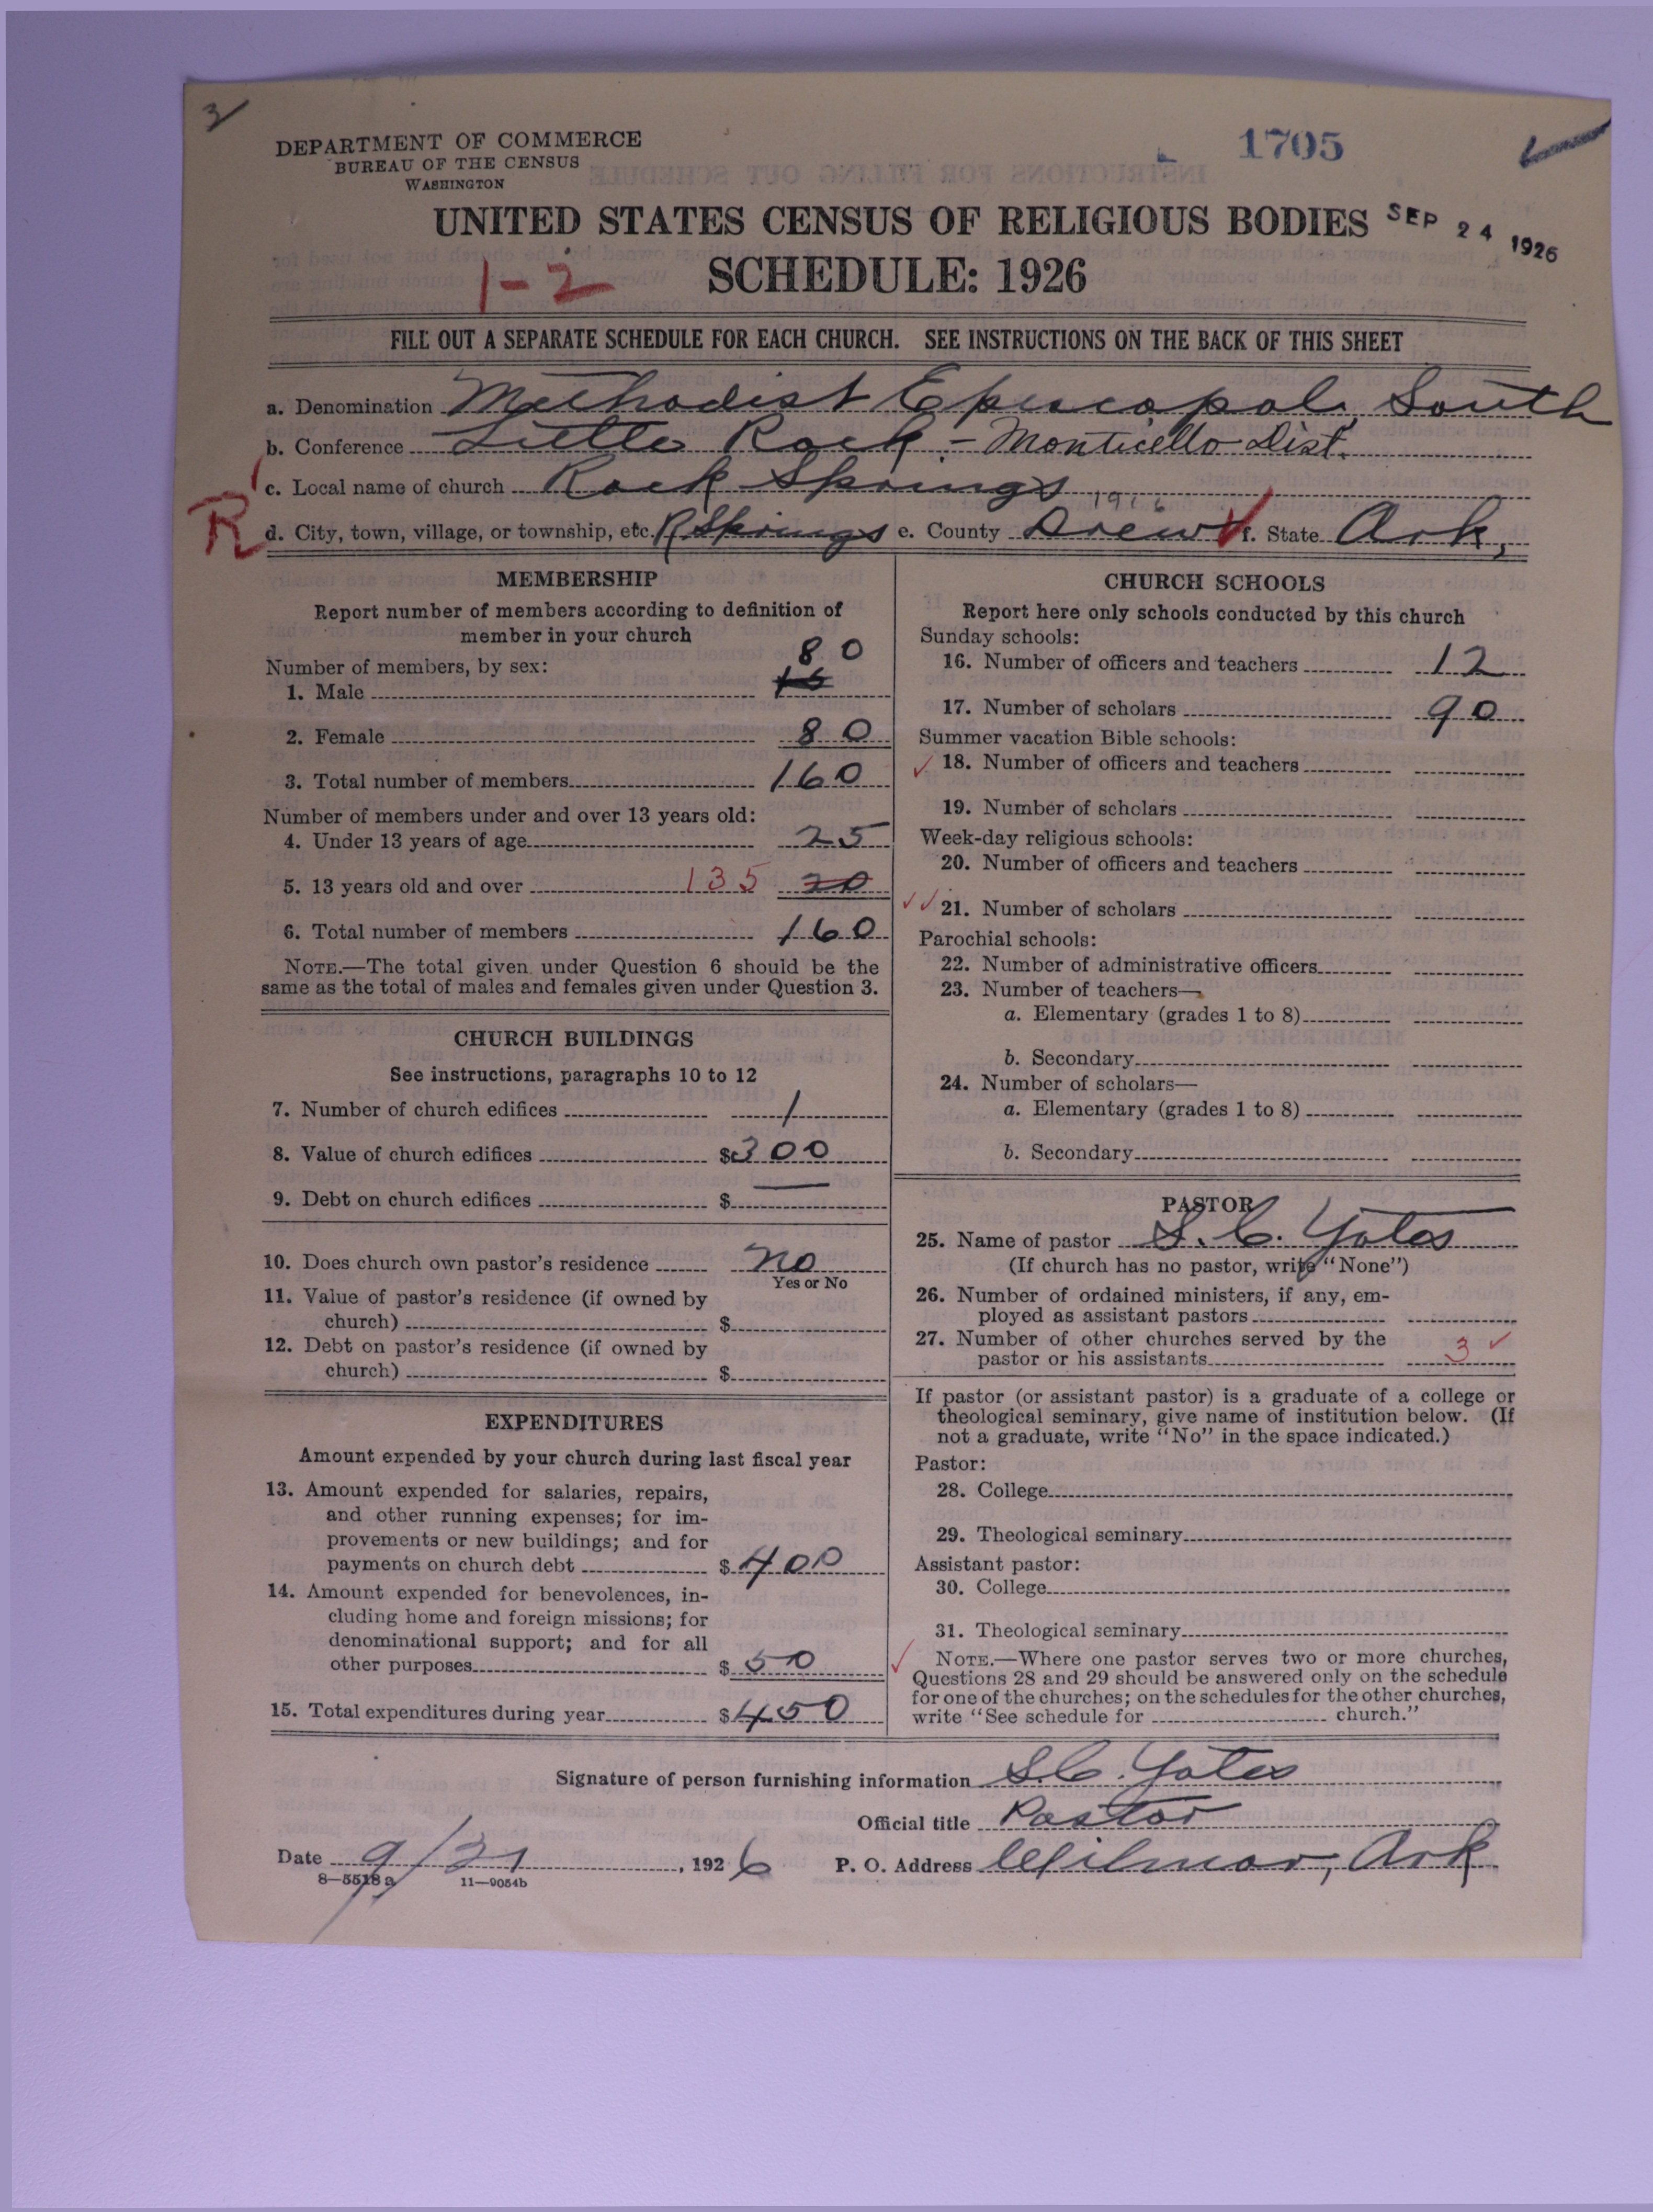 3
DEPARTMENT OF COMMERCE
BUREAU OF THE CENSUS
WASHINGTON
1705
UNITED STATES CENSUS OF RELIGIOUS BODIES
SEP 24 1926
1-2
SCHEDULE: 1926
FILL OUT A SEPARATE SCHEDULE FOR EACH CHURCH. SEE INSTRUCTIONS ON THE BACK OF THIS SHEET
a. Denomination Methodist Episcopal, South
b. Conference Little Rock - Monticello Dist.
c. Local name of church Rock Springs
R d. City, town, village, or township, etc. R Springs e. County Drew f. State Ark,
MEMBERSHIP
Report number of members according to definition of
member in your church
Number of members, by sex:
80
1. Male 15
2. Female 80
3. Total number of members 160
Number of members under and over 13 years old:
4. Under 13 years of age 25
5. 13 years old and over 135 20
6. Total number of members 160
NOTE.—The total given under Question 6 should be the
same as the total of males and females given under Question 3.
CHURCH BUILDINGS
See instructions, paragraphs 10 to 12
7. Number of church edifices 1
8. Value of church edifices $300
9. Debt on church edifices $ —
10. Does church own pastor's residence no
Yes or No
11. Value of pastor's residence (if owned by
church) $
12. Debt on pastor's residence (if owned by
church) $
EXPENDITURES
Amount expended by your church during last fiscal year
13. Amount expended for salaries, repairs,
and other running expenses; for im-
provements or new buildings; and for
payments on church debt $400
14. Amount expended for benevolences, in-
cluding home and foreign missions; for
denominational support; and for all
other purposes $50
15. Total expenditures during year $450
CHURCH SCHOOLS
Report here only schools conducted by this church
Sunday schools:
16. Number of officers and teachers 12
17. Number of scholars 90
Summer vacation Bible schools:
18. Number of officers and teachers
19. Number of scholars
Week-day religious schools:
20. Number of officers and teachers
21. Number of scholars
Parochial schools:
22. Number of administrative officers
23. Number of teachers—
a. Elementary (grades 1 to 8)
b. Secondary
24. Number of scholars—
a. Elementary (grades 1 to 8)
b. Secondary
PASTOR
25. Name of pastor S. C. Yates
(If church has no pastor, write "None")
26. Number of ordained ministers, if any, em-
ployed as assistant pastors
27. Number of other churches served by the
pastor or his assistants 3
If pastor (or assistant pastor) is a graduate of a college or
theological seminary, give name of institution below. (If
not a graduate, write "No" in the space indicated.)
Pastor:
28. College
29. Theological seminary
Assistant pastor:
30. College
31. Theological seminary
NOTE.—Where one pastor serves two or more churches,
Questions 28 and 29 should be answered only on the schedule
for one of the churches; on the schedules for the other churches,
write "See schedule for church."
Signature of person furnishing information S.C. Yates
Official title Pastor
Date 9/21, 1926 P. O. Address Wilmar, Ark
8—5518 a 11—9054b